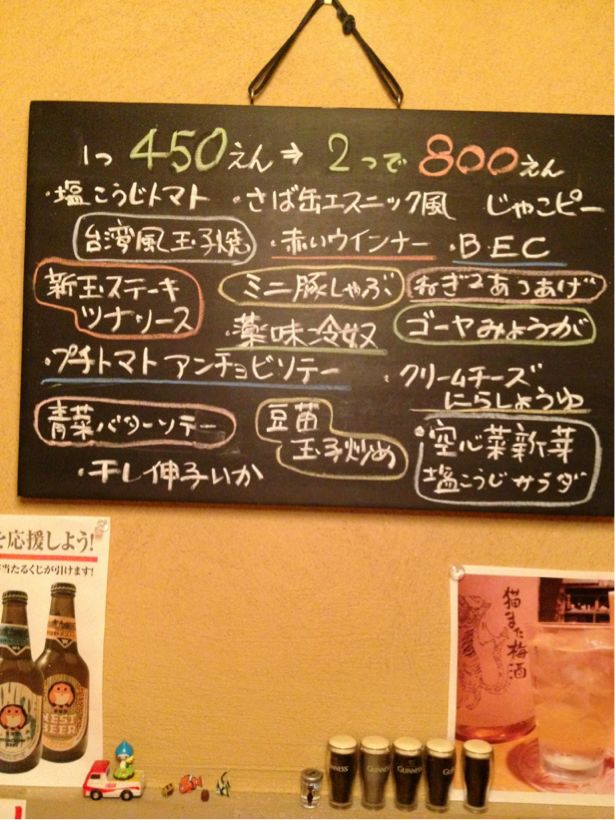 1つ 450えん⇒ 2つで 800えん
・塩こうじトマト ・さば缶エスニック風 じゃこピー
台湾風玉子焼 ・赤いウインナー ・BEC
新玉ステーキ
ツナソース
ミニ豚しゃぶ
ねぎみそあつあげ
・薬味冷奴
ゴーヤみょうが
・プチトマトアンチョビソテー
・クリームチーズ
にらしょうゆ
青菜バターソテー
豆苗
玉子炒め
空心菜新芽
塩こうじサラダ
・干し伸子いか
を応援しよう!
当たるくじが引けます!
NEST
BEER
猫また梅酒
GUINNESS
GUINNESS
GUINNESS